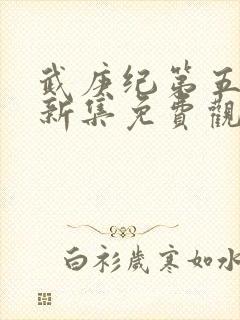 武庚纪第五
新集免費觀
白衫歲寒如水